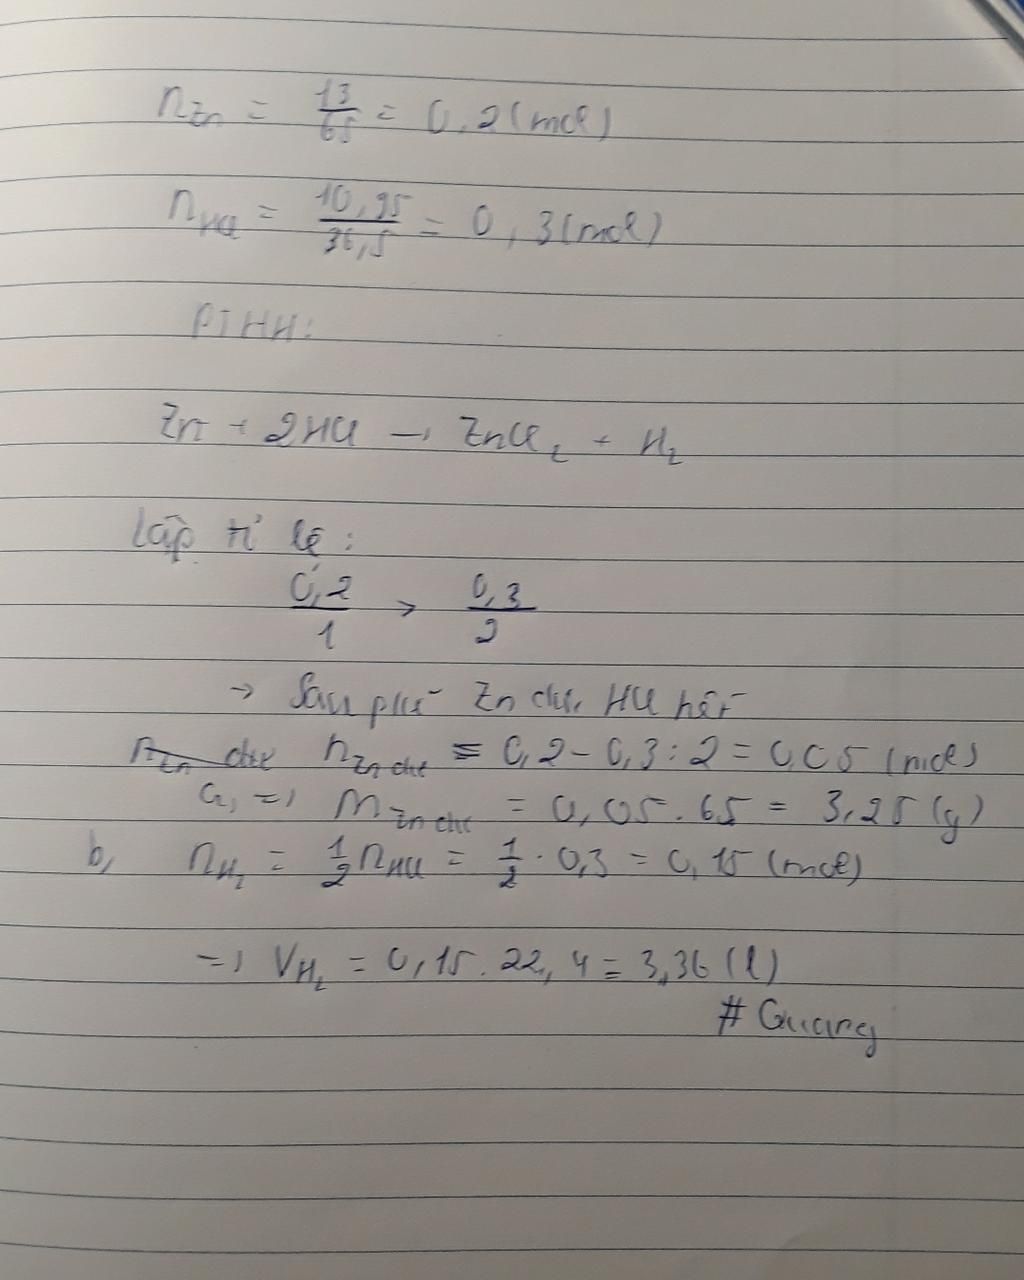 n_Zn = 13/65 = 0,2 (mol)
n_HCl = 10,95/36,5 = 0,3 (mol)
PTHH:
Zn + 2HCl → ZnCl₂ + H₂
Lập tỉ lệ :
0,2/1 > 0,3/2
→ Sau pứ Zn dư, HCl hết
n_Zn dư n_Zn dư = 0,2 - 0,3 : 2 = 0,05 (mol)
a, => m_Zn dư = 0,05 . 65 = 3,25 (g)
b, n_H₂ = 1/2 n_HCl = 1/2 . 0,3 = 0,15 (mol)
=> V_H₂ = 0,15 . 22,4 = 3,36 (l)
# Quang